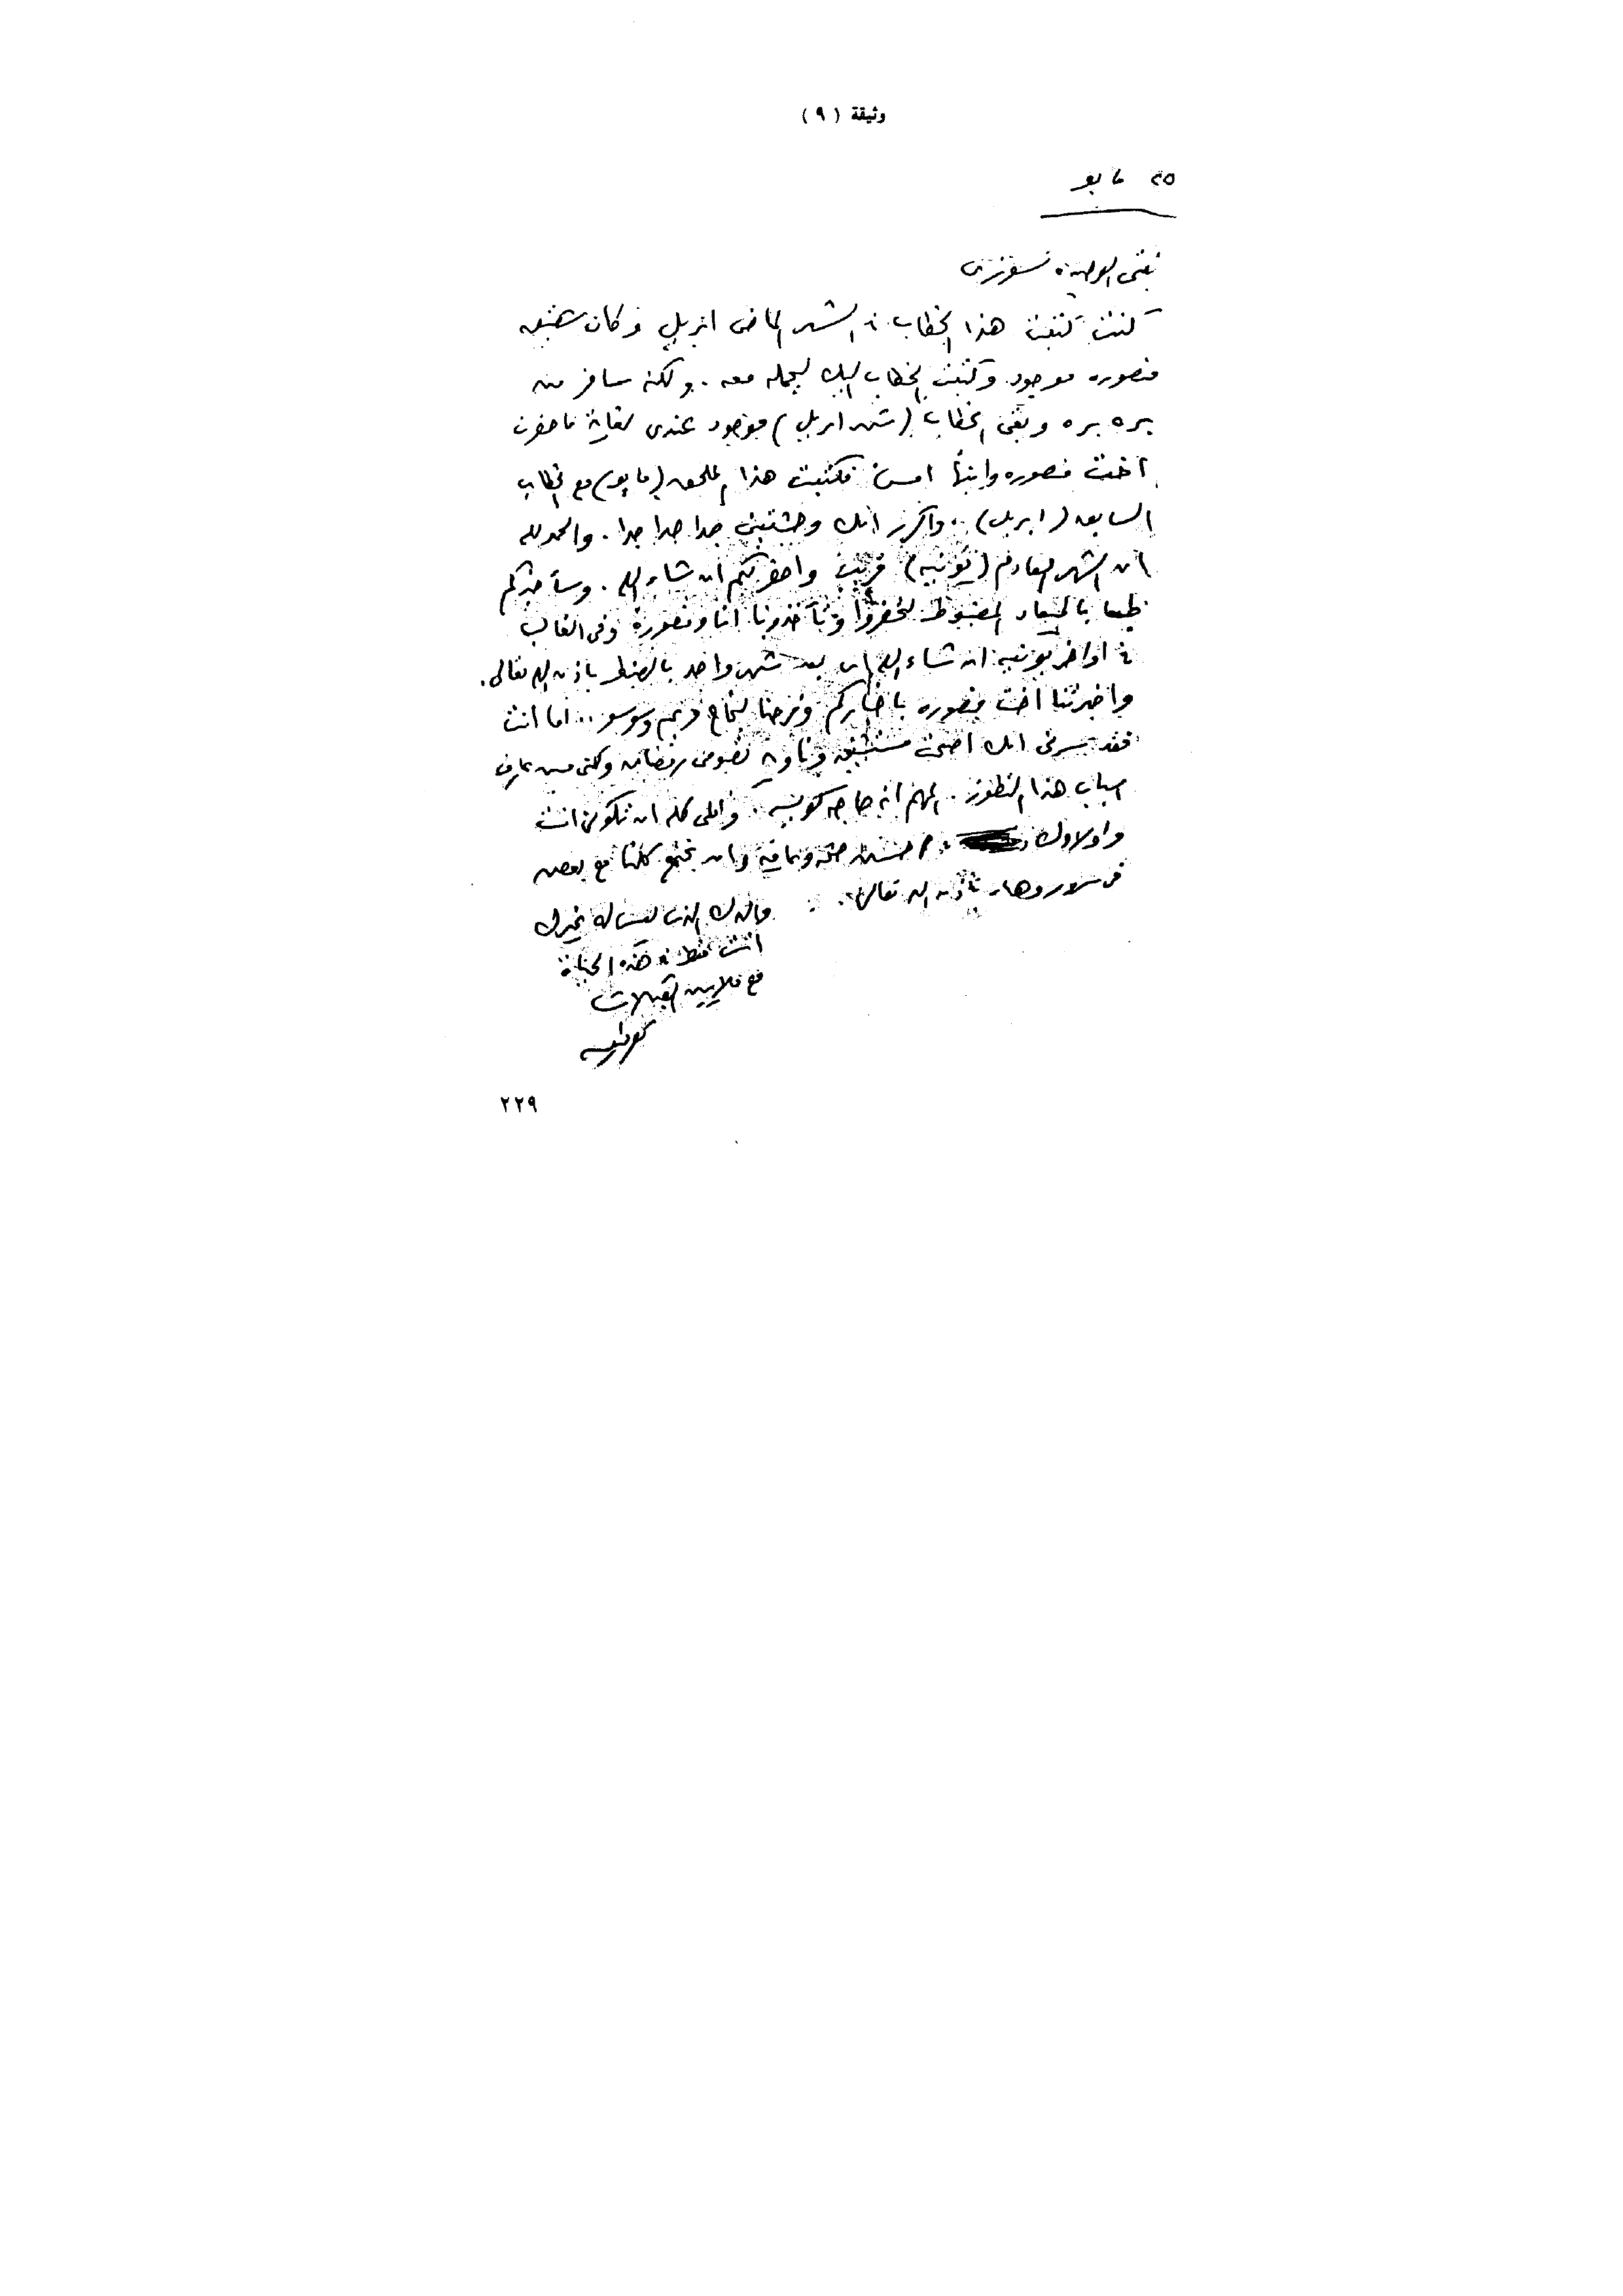 وثيقة ( ٩ )
٢٥ مايو
بنتى الوحيدة
كنت كتبت هذا الخطاب فى الشهر الماضى ابريل وكان شقيق
منصوره موجود وكتبت الخطاب اليك ليحمله معه . ولكنه سافر من
بره بره وبقى الخطاب (شهر ابريل) موجود عندى لغاية ما حضرت
اخت منصوره وابنها امس فكتبت هذا الملحق (مايو) مع الخطاب
السابق (ابريل) .. واكرر انك وحشتينى جدا جدا جدا . والحمد لله
ان الشهر القادم (يونيه) قريب واحضر لكم ان شاء الله . وسأخبركم
طبعا بالميعاد المضبوط لتحضروا وتأخذونا انا ومنصورة وفى الغالب
فى اواخر يونيه ان شاء الله اى بعد شهر واحد بالضبط باذن الله تعالى .
واخبرتنا اخت منصوره باخباركم وفرحنا لنجاح مريم وسوسو .. اما انت
فقد سرنى انك وناويه تصومى رمضان ولكنى مش عارف
اسباب هذا التطور . المهم انه حاجه كويسه . واملى كله ان تكونى انت
واولادك فى احسن صحه وعافيه وان نجتمع كلنا مع بعض
فى سرور وهناء باذن الله تعالى .
والدك الذى ليس له غيرك
انت فقط فى هذه الحياة
مع ملايين القبلات
٢٢٩